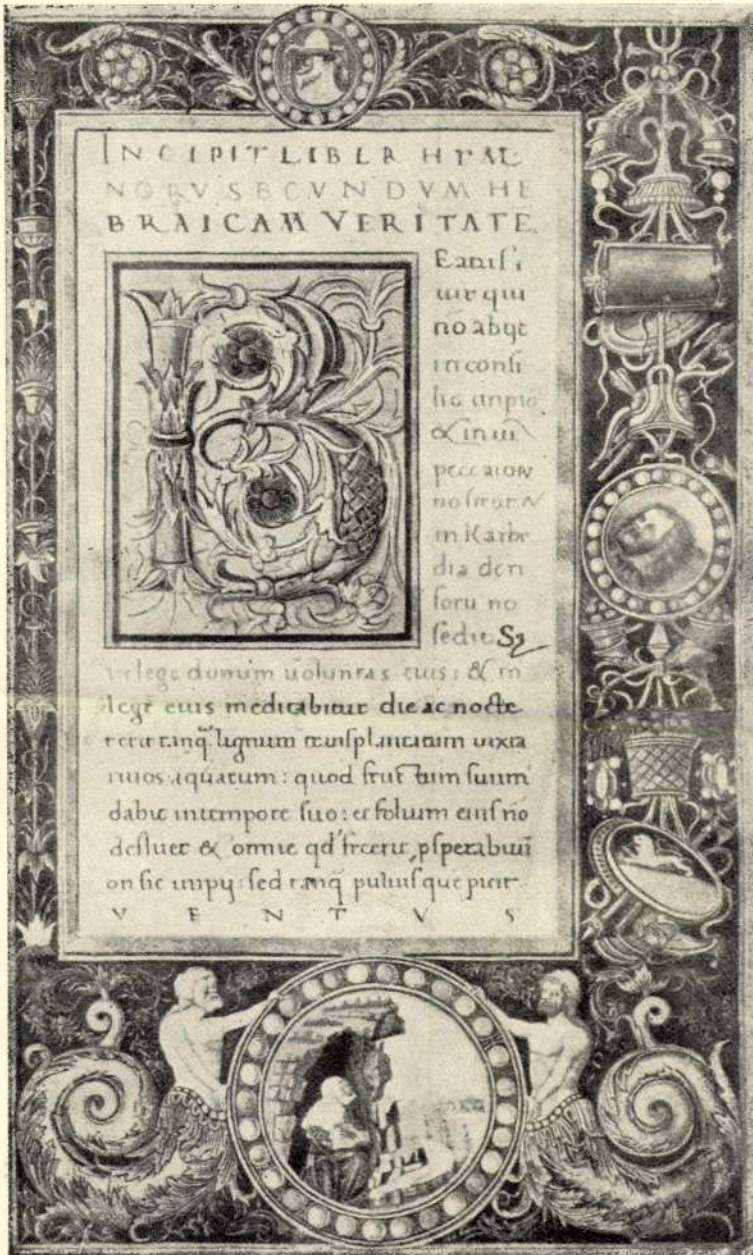 INCIPIT LIBER HYM
NORVS SECVNDVM HE
BRAICAM VERITATE.
B
Eatus
uir qui
nō abyt
in consi
lio impio
& in uia
peccatorū
no stetit &
in Kathe
dia deri
soru no
sedit S₂
in lege domini uoluntas eius: & in
lege eius meditabitur die ac nocte
et erit tanq̄ lignum transplantatum iuxta
riuos aquarum: quod fructum suum
dabit in tempore suo: et folium eius nō
defluet & omne qd' fecerit, psperabitur
on sic impij: sed tanq̄ puluis que picit
VENTVS